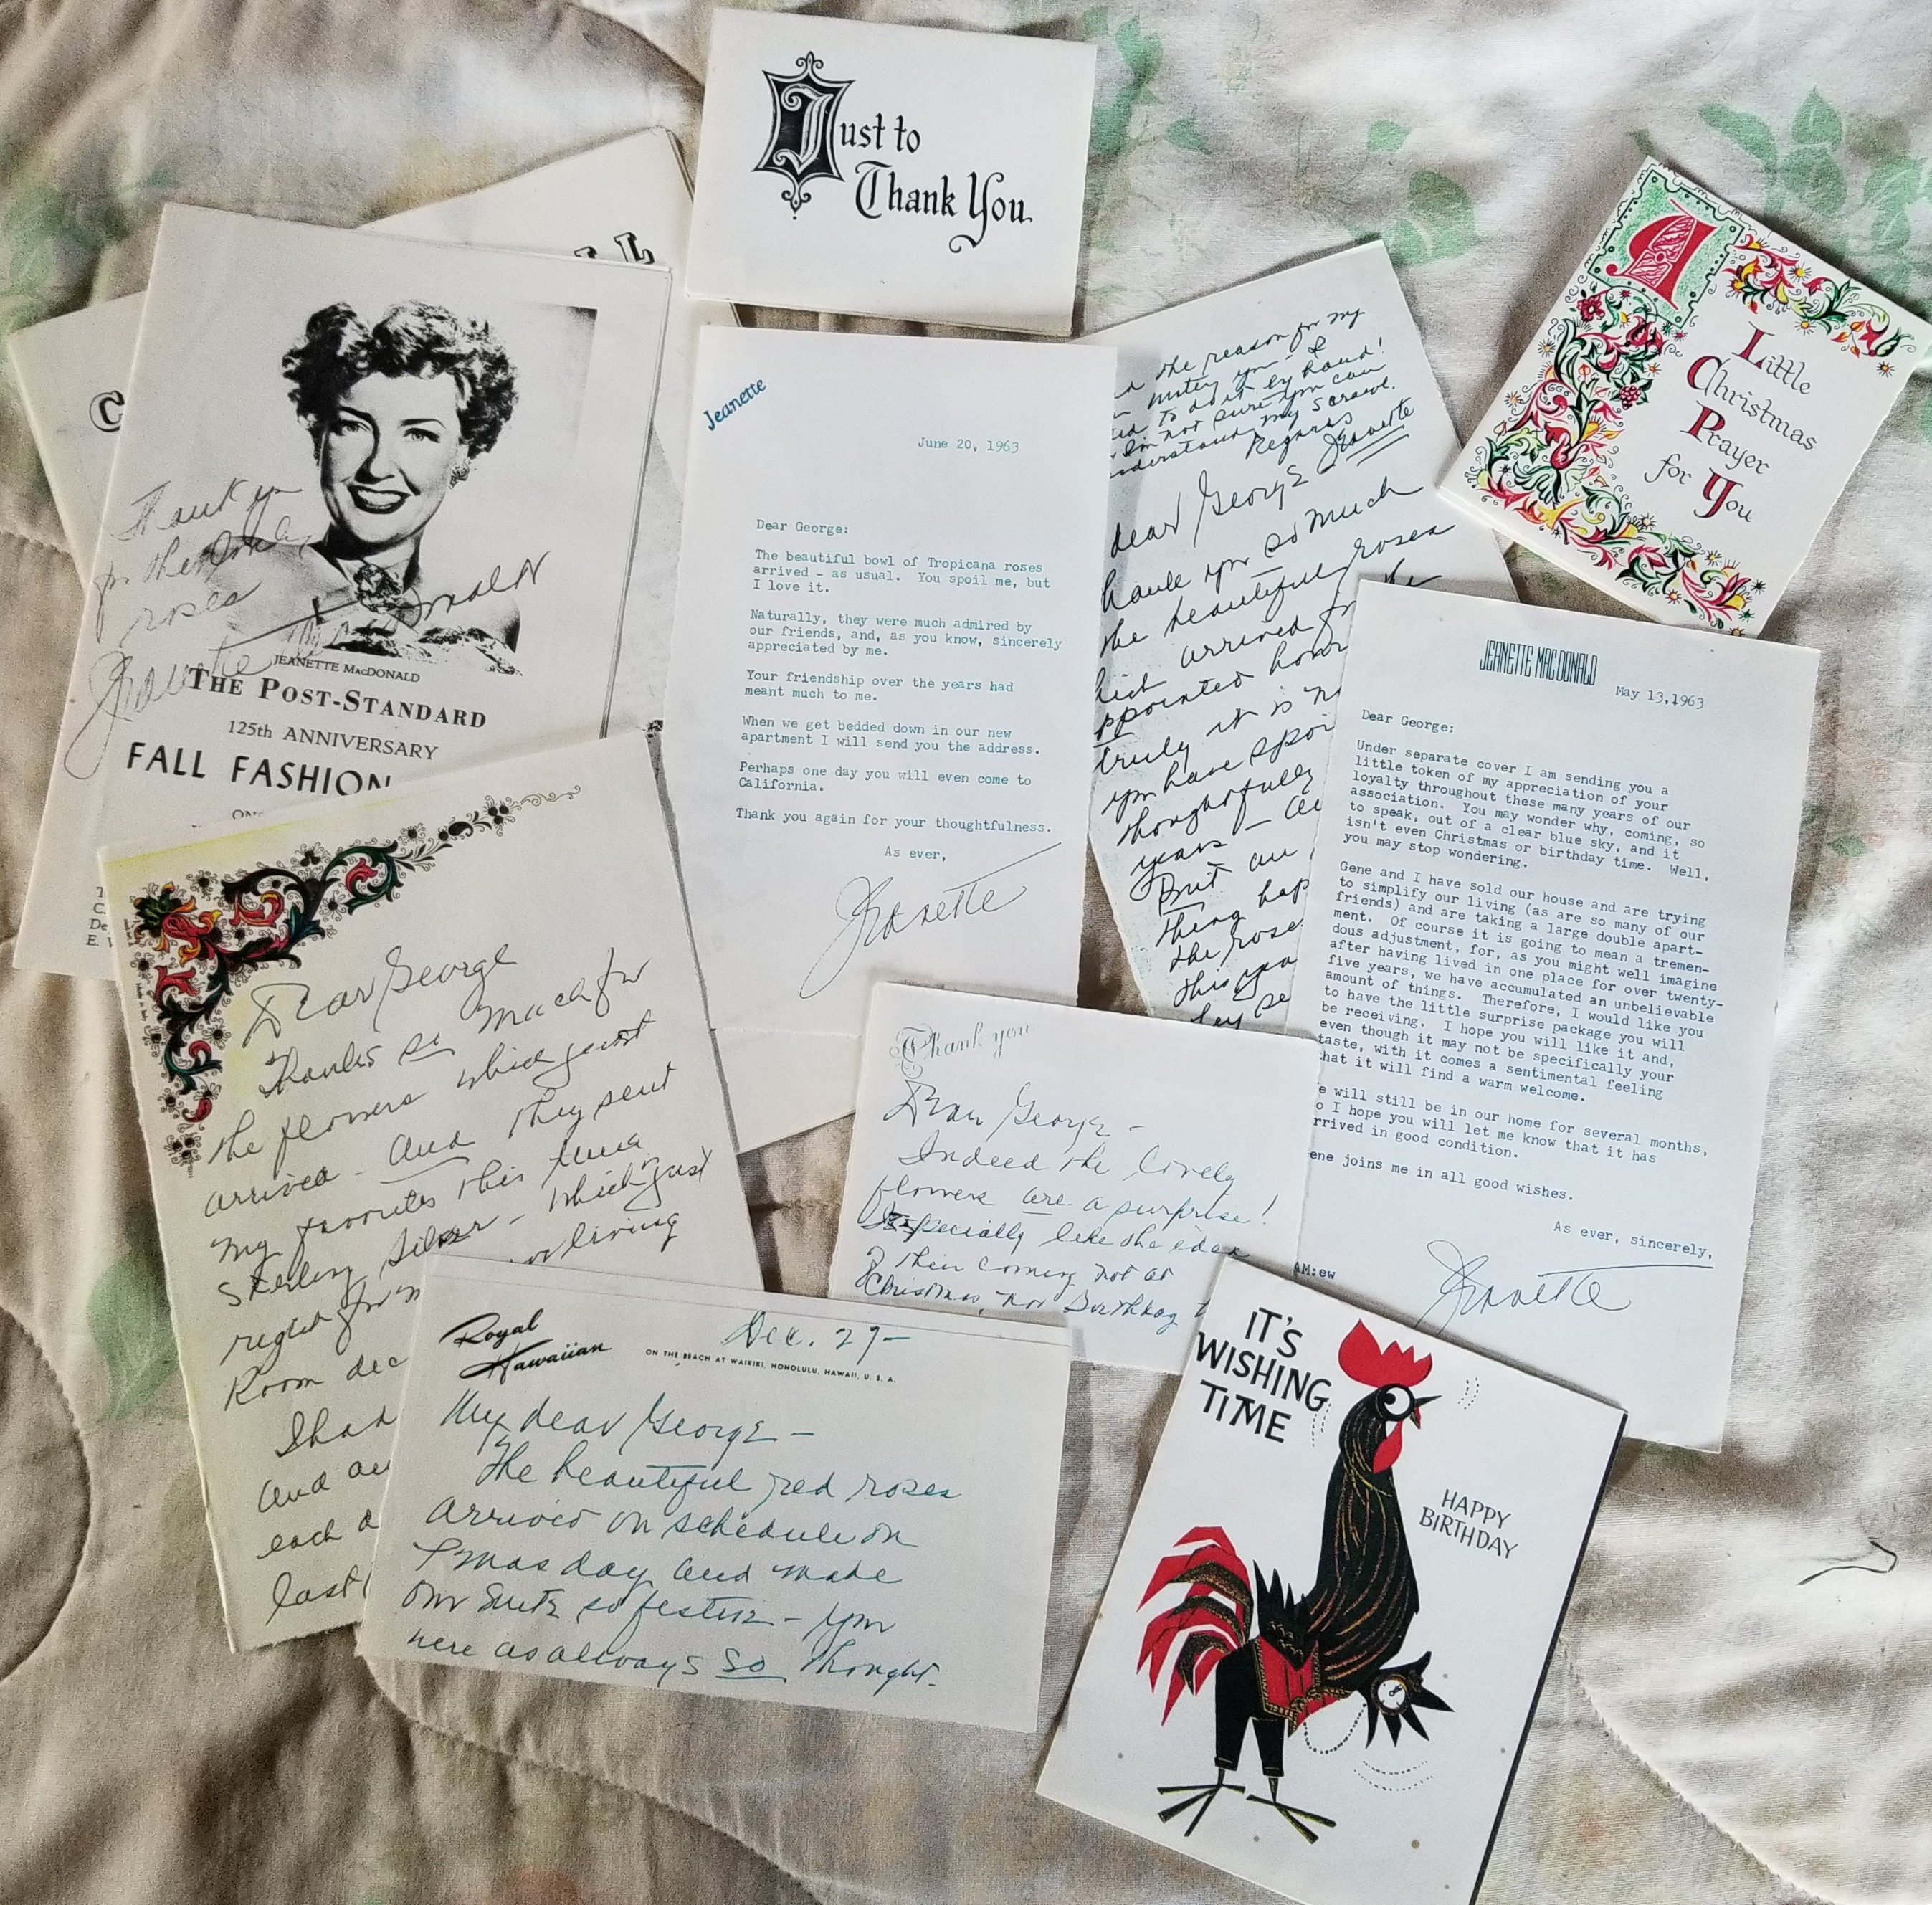 Just to
Thank You
LL
C
Thank you
for the lovely
roses
Jeanette MacDonald
JEANETTE MacDONALD
THE POST-STANDARD
125th ANNIVERSARY
FALL FASHION
ON
T
C.
De
E. V
Jeanette
June 20, 1963
Dear George:
The beautiful bowl of Tropicana roses
arrived - as usual. You spoil me, but
I love it.
Naturally, they were much admired by
our friends, and, as you know, sincerely
appreciated by me.
Your friendship over the years had
meant much to me.
When we get bedded down in our new
apartment I will send you the address.
Perhaps one day you will even come to
California.
Thank you again for your thoughtfulness.
As ever,
Jeanette
the reason for my
to do it by hand!
I'm not sure you can
understand my scrawl.
Regards
Jeanette
dear George
thank you so much
the beautiful roses
arrived
appointed hour
truly it is
you have
thoughtfully
years —
But an
thing hap
the rose
this yea
hey se
A
Little
Christmas
Prayer
for You
JEANETTE MACDONALD
May 13,1963
Dear George:
Under separate cover I am sending you a
little token of my appreciation of your
loyalty throughout these many years of our
association. You may wonder why, coming, so
to speak, out of a clear blue sky, and it
isn't even Christmas or birthday time. Well,
you may stop wondering.
Gene and I have sold our house and are trying
to simplify our living (as are so many of our
friends) and are taking a large double apart-
ment. Of course it is going to mean a tremen-
dous adjustment, for, as you might well imagine
after having lived in one place for over twenty-
five years, we have accumulated an unbelievable
amount of things. Therefore, I would like you
to have the little surprise package you will
be receiving. I hope you will like it and,
even though it may not be specifically your
taste, with it comes a sentimental feeling
hat it will find a warm welcome.
e will still be in our home for several months,
o I hope you will let me know that it has
rrived in good condition.
ene joins me in all good wishes.
As ever, sincerely,
Jeanette
AM:ew
Dear George
Thanks so much for
the flowers which just
arrived - And they sent
my favorites this time
Sterling Silver - which just
right for m or living
Room dec
Shad
and
each d
last
Thank you
Dear George -
Indeed the lovely
flowers are a surprise!
Especially like the idea
of their coming not at
Christmas, nor Birthday t
Royal
Hawaiian
ON THE BEACH AT WAIKIKI, HONOLULU, HAWAII, U. S. A.
Dec. 27-
My dear George -
The beautiful red roses
arrived on schedule on
Xmas day and made
our Suite so festive - you
were as always so thought-
IT'S
WISHING
TIME
HAPPY
BIRTHDAY